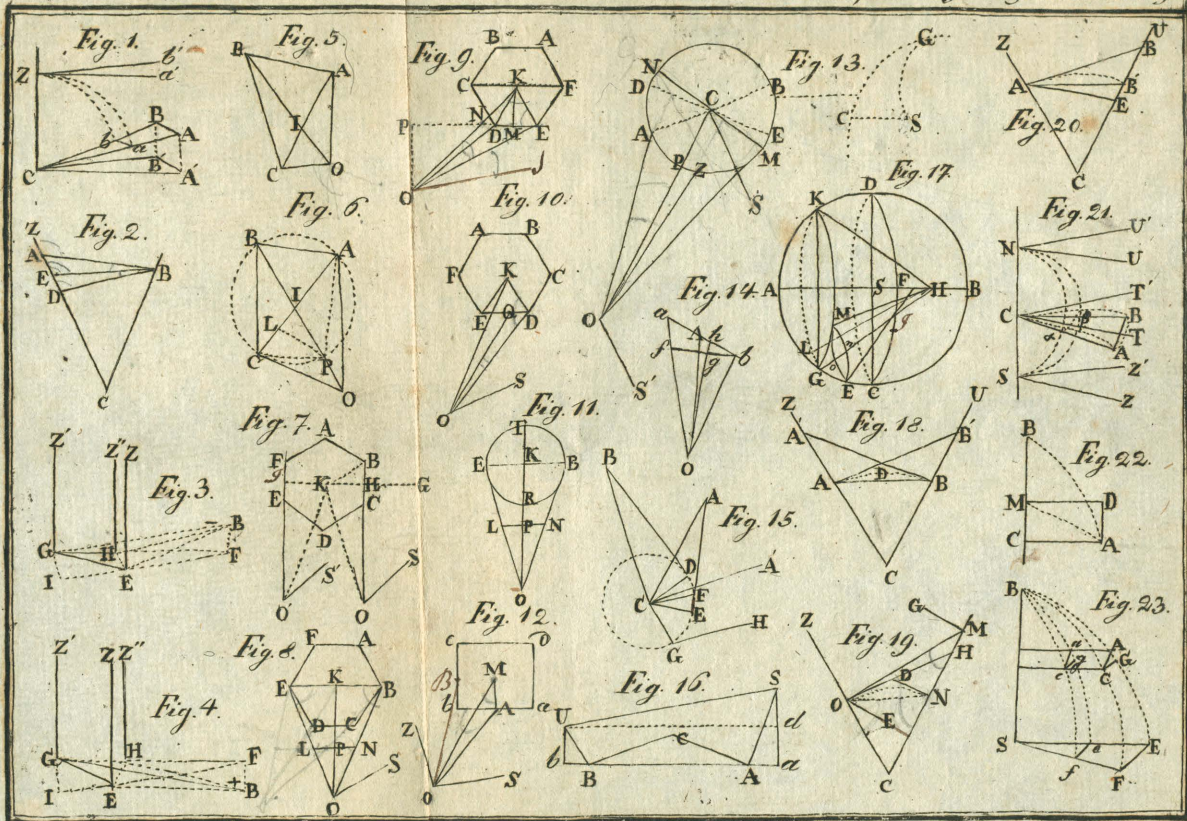 Fig. 1.
Z b' a'
B A b a B' A' C
Fig. 5
B A I C O
Fig. 9.
B A C K F N P D M E O
Fig. 13.
N D C B A E M P Z S O S' G C S
Fig. 20.
Z U B A B' E C
Fig. 2.
Z A E D B C
Fig. 6.
B A I L C P O
Fig. 10.
A B F K C E D S O
Fig. 14.
a A h f g b O
Fig. 17.
K D A S F H B M g L G E C
Fig. 21.
N U' U T' C B T A S Z' Z
Fig. 3.
Z' Z'' Z B G H F I E
Fig. 7.
A F B g K H G E C D S' S O' O
Fig. 11.
T E K B R L P N O
Fig. 15.
B A D A' C F E H G
Fig. 18.
Z U A' B' A D B C
Fig. 22.
B M D C A
Fig. 4.
Z' Z Z'' H G F I E B
Fig. 8.
F A E K B D C L P N S O
Fig. 12.
c o B M b A a Z S O
Fig. 16.
S U d C b B A a
Fig. 19.
Z G M H D O N E C
Fig. 23.
B a A g G c C S e E f F